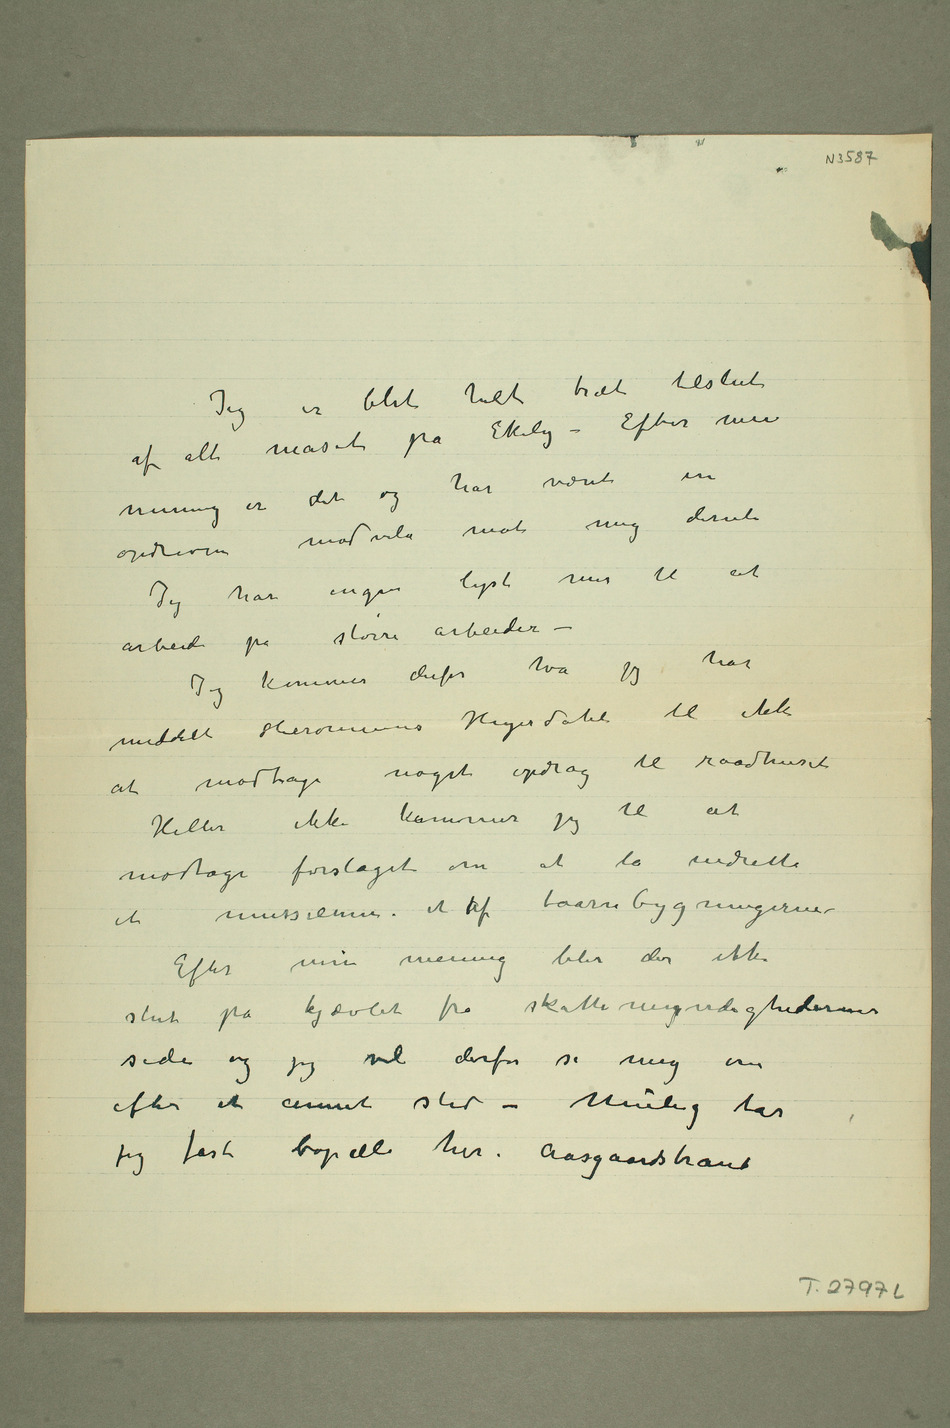 N3587
Jeg er blet helt træt tilslut
af alt maset på Ekely – Efter min
mening er det og har været en
opdreven modvila mot mig derute
Jeg har ingen lyst mer til at
arbeide på større arbeider –
Jeg kommer derfor hva jeg har
meddelt Hieronimus Heyerdahl til ikke
at modtage noget opdrag til raadhuset
Heller ikke kommer jeg til at
modtage forslaget om at la indrette
et mussæum i et af taarnbygningerne –
Efter min mening blir der ikke
slut på kjævlet fra skattemyndighedernes
side og jeg vil derfor se mig om
efter et annet sted – Mulig tar
jeg fast bopæl her i Aasgaardstrand
T. 2797 L